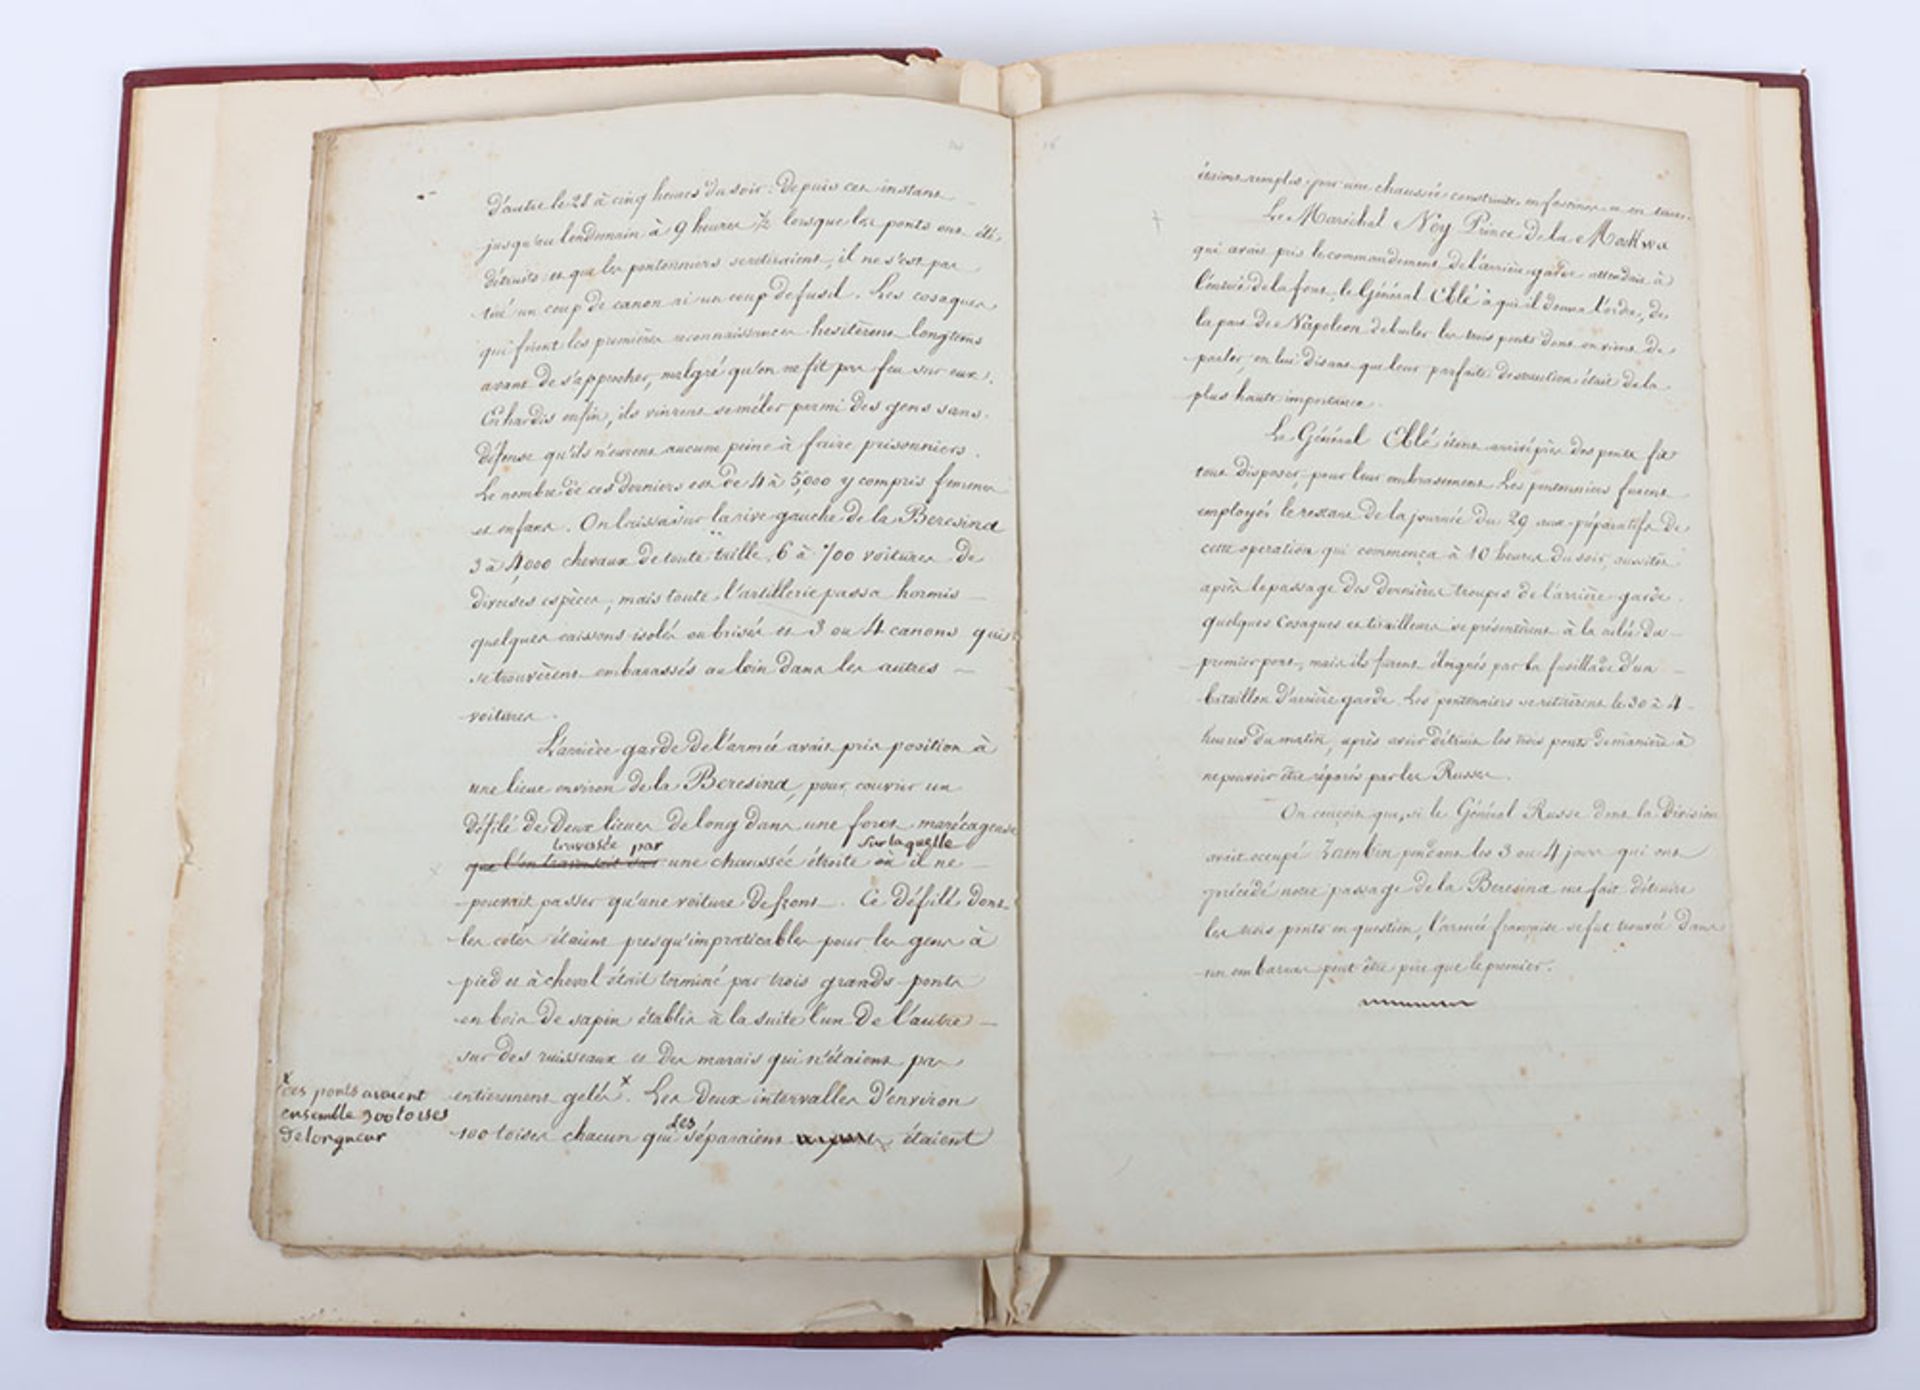 d'autre le 28 à cinq heures du soir. Depuis cet instant
jusqu'au lendemain à 9 heures ½ lorsque les ponts ont été
détruits et que les pontonniers se retiraient, il ne s'est pas
tiré un coup de canon ni un coup de fusil. Les cosaques
qui firent les premières reconnaissances hesitèrent longtems
avant de s'approcher, malgré qu'on ne fit pas feu sur eux.
Enhardis enfin, ils vinrent se mêler parmi des gens sans
défense qu'ils n'eurent aucune peine à faire prisonniers.
Le nombre de ces derniers est de 4 à 5,000 y compris femmes
et enfans. On laissa sur la rive gauche de la Beresina
3 à 4,000 chevaux de toute taille, 6 à 700 voitures de
diverses espèces, mais toute l'artillerie passa hormis
quelques caissons isolés ou brisés et 3 ou 4 canons qui
se trouvèrent embarassés au loin dans les autres
voitures.
L'arrière garde de l'armée avait pris position à
une lieue environ de la Beresina, pour couvrir un
défilé de deux lieues de long dans une foret marécageuse
traversée par sur laquelle
que l'on traversait sur une chaussée étroite où il ne
pouvait passer qu'une voiture de front. Ce défilé dont
les cotés étaient presqu'impraticables pour les gens à
pied et à cheval était terminé par trois grands ponts
en bois de sapin établis à la suite l'un de l'autre
sur des ruisseaux et des marais qui n'étaient pas
entierement gelés x. Les deux intervalles d'environ
100 toises chacun qui les séparaient étaient
x ces ponts avaient
ensemble 300 toises
de longueur
étaient remplis par une chaussée construite en fascines et en terre.
Le Maréchal Ney Prince de la Moskwa
qui avait pris le commandement de l'arrière garde attendait à
l'entrée de la foret, le Général Eblé à qui il donna l'ordre, de
la part de Napoleon de bruler les trois ponts dont on vient de
parler, en lui disant que leur parfaite destruction était de la
plus haute importance.
Le Général Eblé étant arrivé près des ponts fit
tout disposer pour leur embrasement. Les pontonniers furent
employés le restant de la journée du 29 aux préparatifs de
cette operation qui commença à 10 heures du soir, aussitôt
après le passage des dernières troupes de l'arrière garde.
Quelques Cosaques et tirailleurs se présentèrent à la culée du
premier pont, mais ils furent éloignés par la fusillade d'un
bataillon d'arrière garde. Les pontonniers se retirèrent le 30 à 4
heures du matin, après avoir détruit les trois ponts de manière à
ne pouvoir être réparés par les Russes.
On conçoit que, si le Général Russe dont la Division
avait occupé Zembin pendant les 3 ou 4 jours qui ont
précédé notre passage de la Beresina eut fait détruire
les trois ponts en question, l'armée française se fut trouvée dans
un embarras peut être pire que le premier.